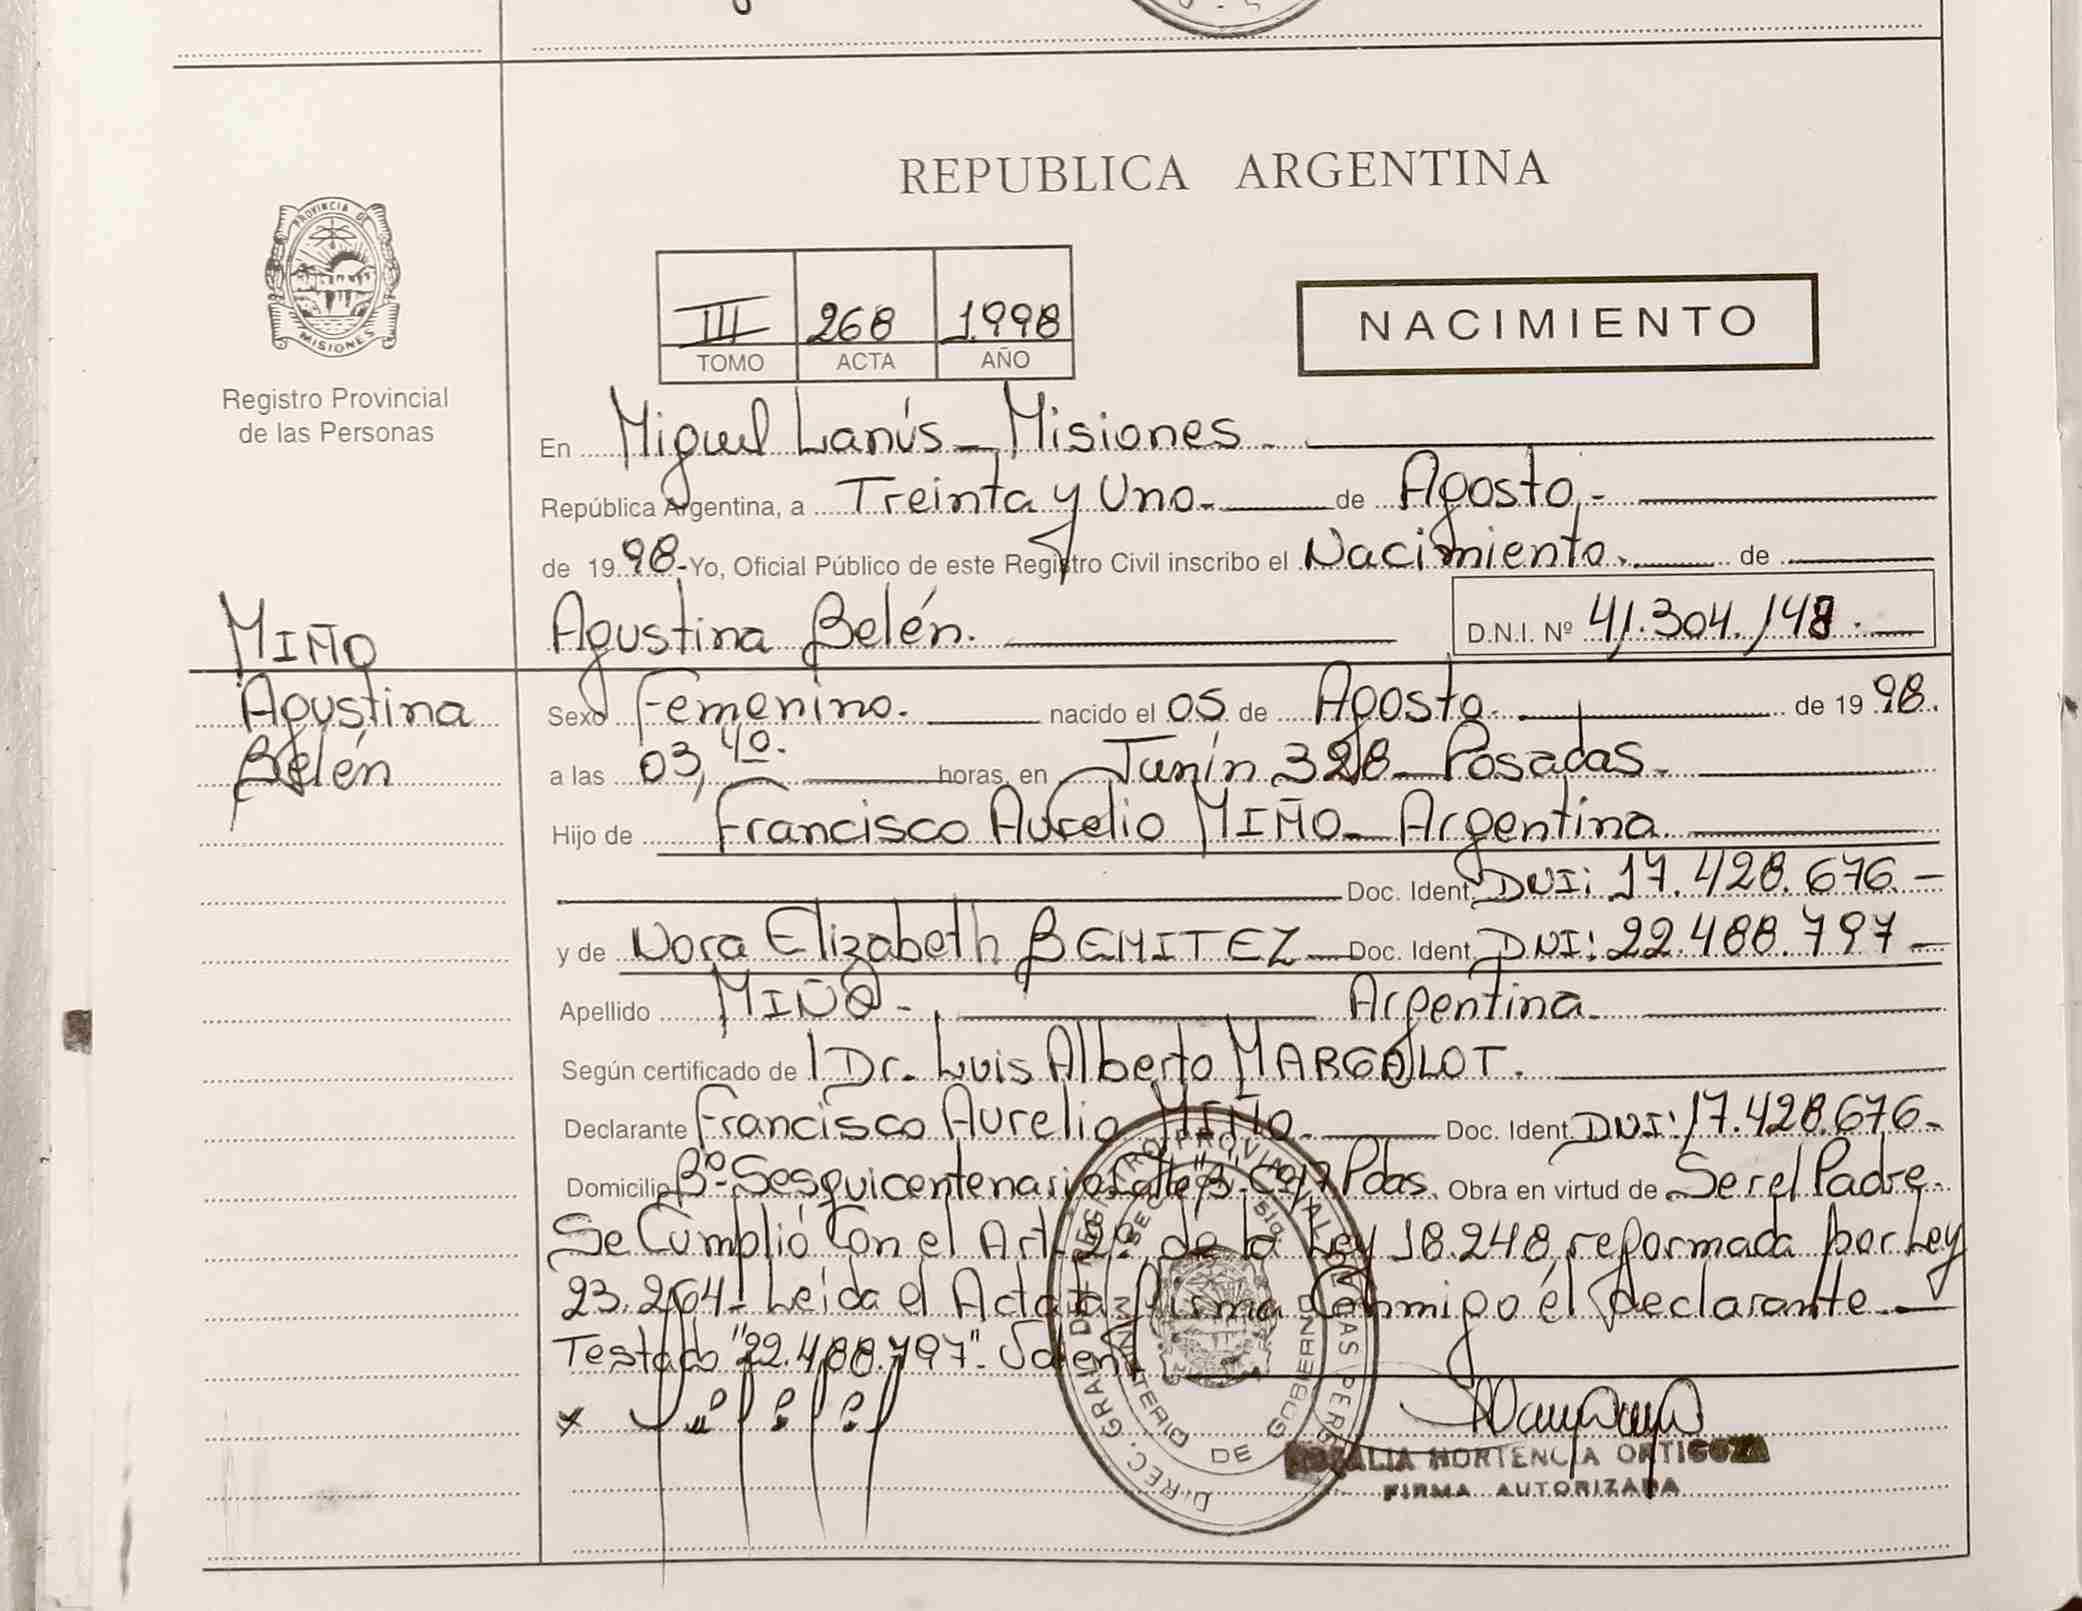 REPUBLICA ARGENTINA
PROVINCIA DE
MISIONES
Registro Provincial
de las Personas
III 268 1.998
TOMO ACTA AÑO
NACIMIENTO
En Miguel Lanús - Misiones -
República Argentina, a Treinta y Uno. de Agosto. -
de 19 98 - Yo, Oficial Público de este Registro Civil inscribo el Nacimiento. de
MIÑO
Agustina
Belén
Agustina Belén. D.N.I. Nº 41.304.148.
Sexo Femenino. nacido el 05 de Agosto. de 19 98.
a las 03,40. horas, en Junín 328 - Posadas.
Hijo de Francisco Aurelio MIÑO - Argentina.
Doc. Ident. DNI: 17.428.676 -
y de Nora Elizabeth BENITEZ - Doc. Ident. DNI: 22.488.797 -
Apellido MIÑO - Argentina.
Según certificado de Dr. Luis Alberto MARGALOT.
Declarante Francisco Aurelio MIÑO. Doc. Ident. DNI: 17.428.676 -
Domicilio Bº Sesquicentenario Calle "B" Pdas. Obra en virtud de Ser el Padre.
Se Cumplió Con el Art. 2º de la Ley 18.248, reformada por Ley
23.264 - Leída el Acta la firma Conmigo él declarante.
Testado "22.488.797" -
x
DIREC. GRAL. DEL REGISTRO PROVINCIAL DE LAS PERS
MINISTERIO DE GOBIERNO
ROSALIA HORTENCIA ORTIGOZA
FIRMA AUTORIZADA